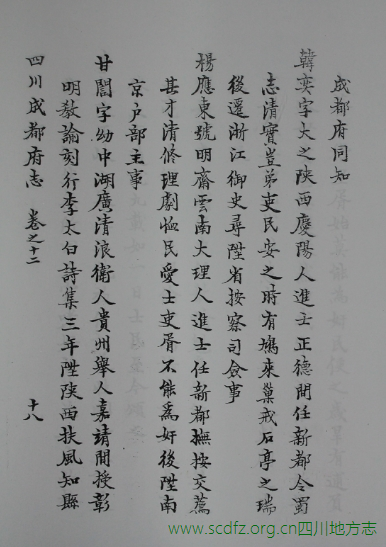 成都府同知
韓奕字大之陝西慶陽人進士正德間任新都令蜀
志清實豈弟吏民安之時有鳩來巢戒石亭之瑞
後遷浙江御史尋陞省按察司僉事
楊應東號明齋雲南大理人進士任新都撫按交薦
其才清脩理劇恤民愛士吏胥不能爲奸後陞南
京户部主事
甘誾字幼中湖廣清浪衛人貴州舉人嘉靖間授彰
明教諭刻行李太白詩集三年陞陝西扶風知縣
四川成都府志 卷之十二 十八
www.scdfz.org.cn四川地方志